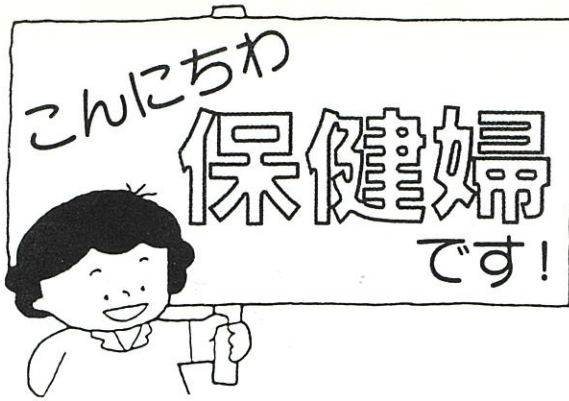 こんにちわ
保健婦
です!